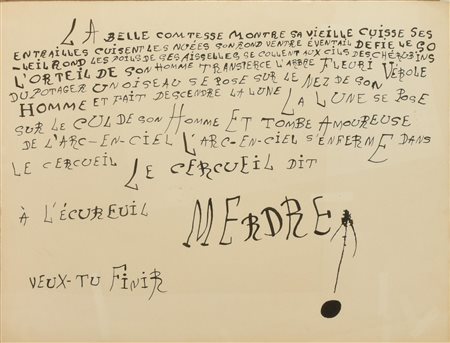 LA BELLE COMTESSE MONTRE SA VIEILLE CUISSE SES
ENTRAILLES CUISENT LES NUÉES SON ROND VENTRE ÉVENTAIL DÉFIE LE SO
LEIL ROND LES POILS DE SES AISSELLES SE COLLENT AUX CILS DES CHÉRUBINS
L'ORTEIL DE SON HOMME TRANSPERCE L'ARBRE FLEURI VÉROLE
DU POTAGER UN OISEAU SE POSE SUR LE NEZ DE SON
HOMME ET FAIT DESCENDRE LA LUNE LA LUNE SE POSE
SUR LE CUL DE SON HOMME ET TOMBE AMOUREUSE
DE L'ARC-EN-CIEL L'ARC-EN-CIEL S'ENFERME DANS
LE CERCUEIL LE CERCUEIL DIT
À L'ÉCUREUIL MERDRE
VEUX-TU FINIR